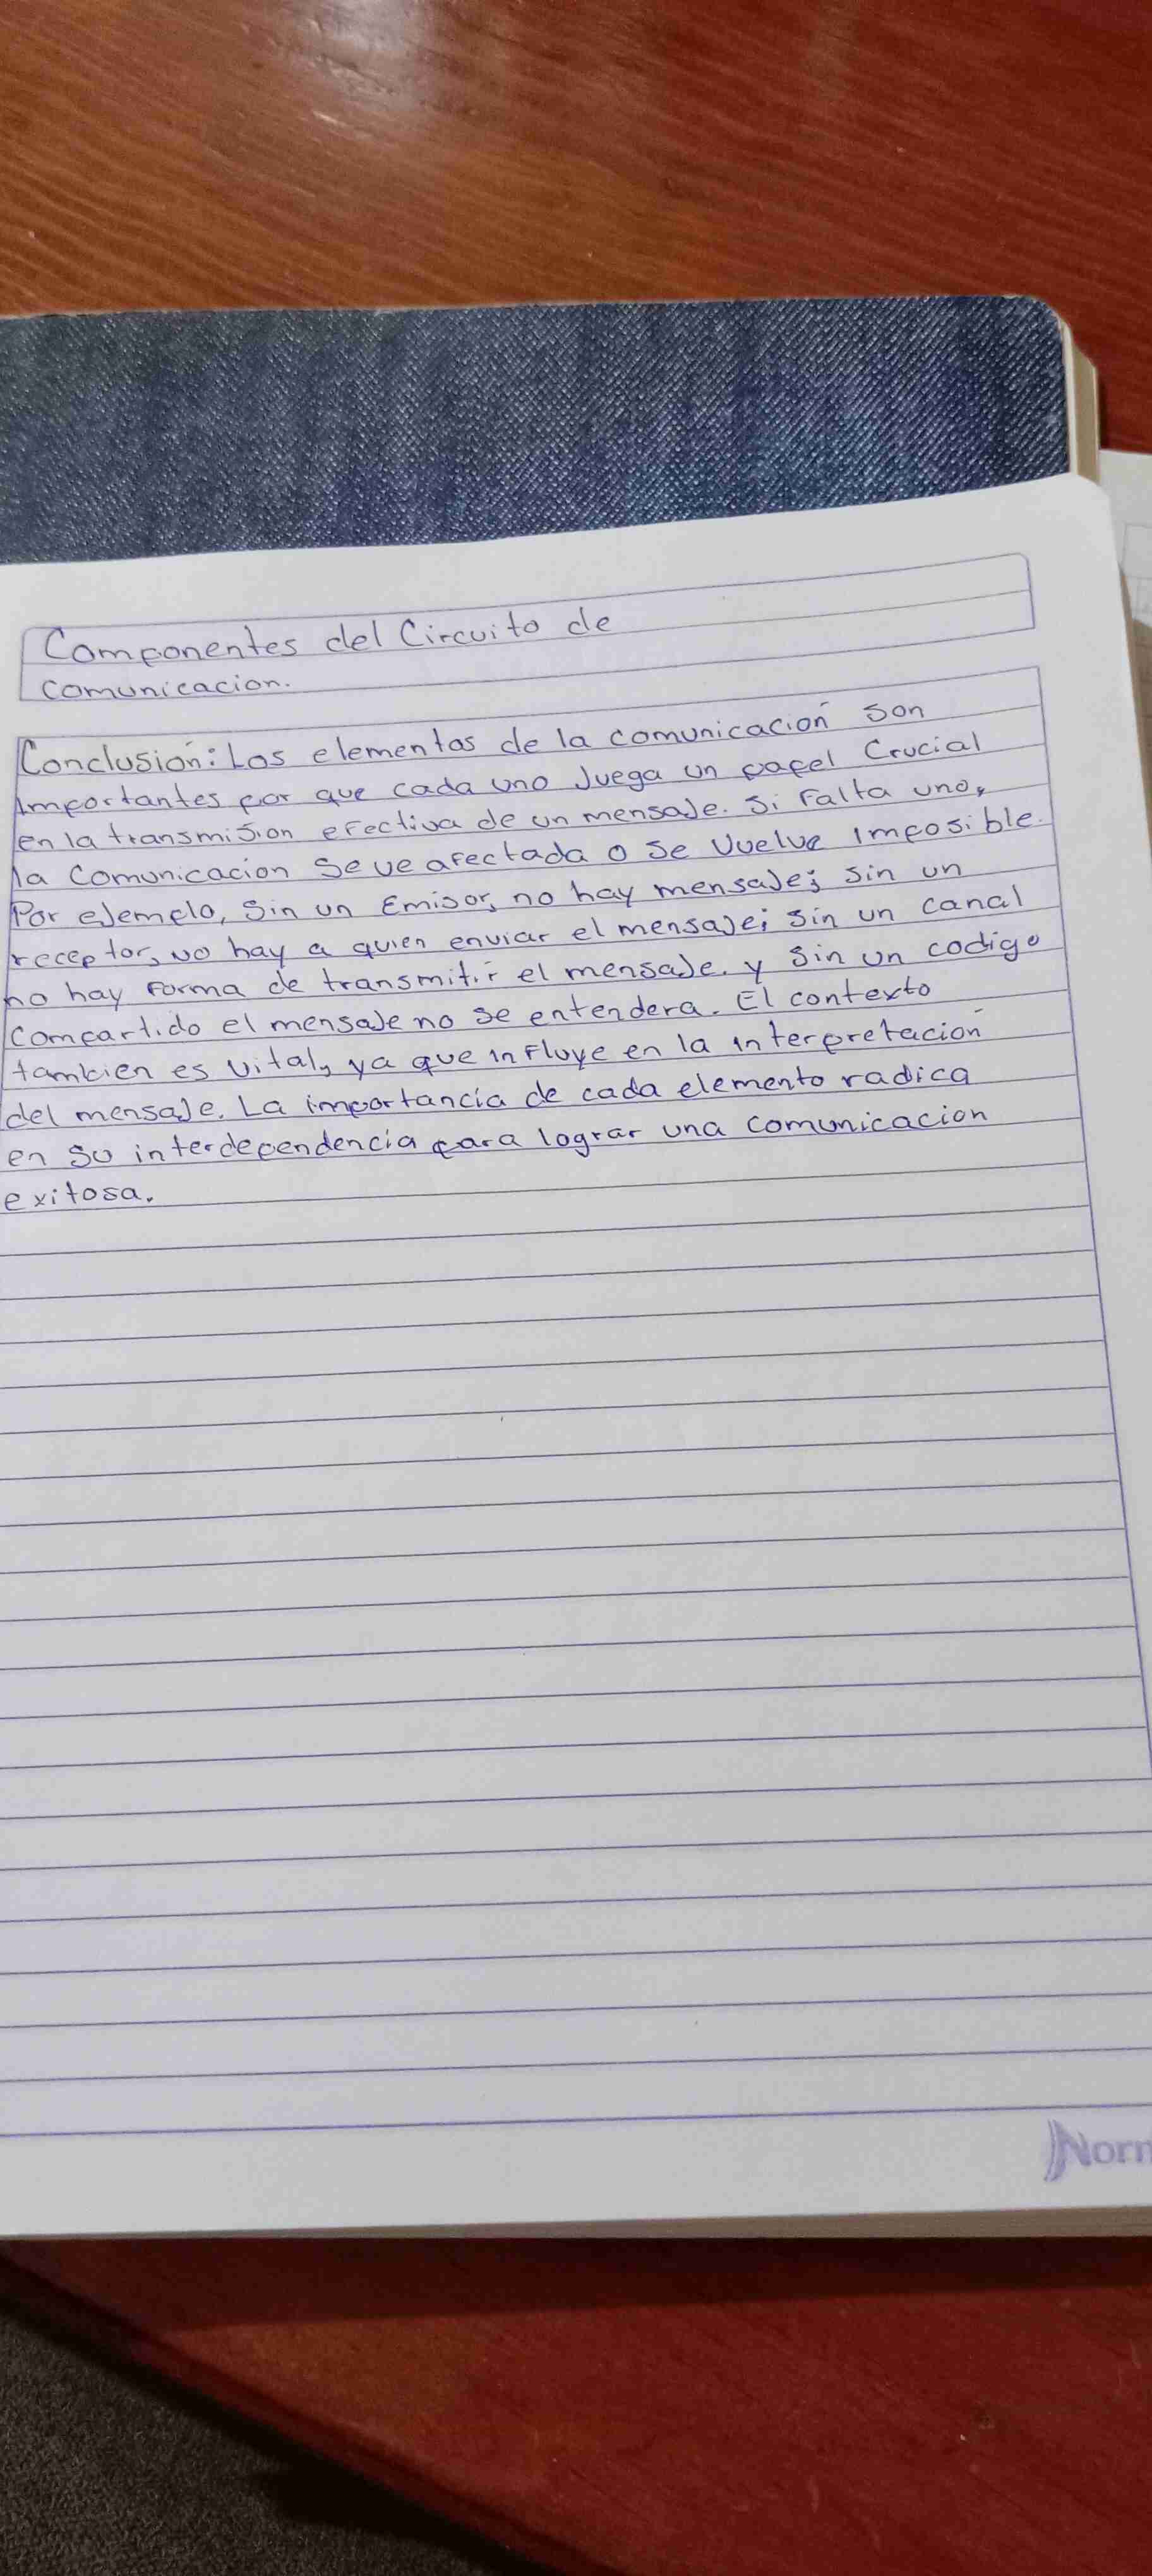 Componentes del Circuito de
comunicacion.
Conclusión: Los elementos de la comunicación son
importantes por que cada uno Juega un papel Crucial
en la transmisión efectiva de un mensaje. Si Falta uno,
la Comunicacion se ve afectada o se vuelve imposible.
Por ejemplo, Sin un Emisor, no hay mensaje; sin un
receptor, no hay a quien enviar el mensaje; sin un canal
no hay forma de transmitir el mensaje. y sin un codigo
compartido el mensaje no se entendera. El contexto
tambien es vital, ya que influye en la interpretación
del mensaje. La importancia de cada elemento radica
en su interdependencia para lograr una comunicacion
exitosa.
Norm